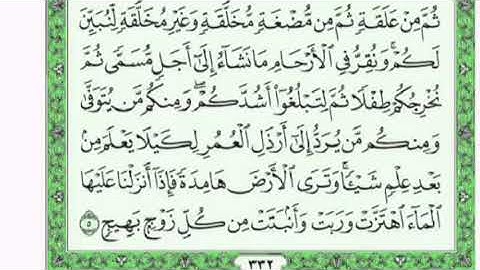 ثُمَّ مِنْ عَلَقَةٍ ثُمَّ مِن مُّضْغَةٍ مُّخَلَّقَةٍ وَغَيْرِ مُخَلَّقَةٍ لِّنُبَيِّنَ
لَكُمْ ۚ وَنُقِرُّ فِي ٱلْأَرْحَامِ مَا نَشَآءُ إِلَىٰٓ أَجَلٍ مُّسَمًّى ثُمَّ
نُخْرِجُكُمْ طِفْلًا ثُمَّ لِتَبْلُغُوٓا۟ أَشُدَّكُمْ ۖ وَمِنكُم مَّن يُتَوَفَّىٰ
وَمِنكُم مَّن يُرَدُّ إِلَىٰٓ أَرْذَلِ ٱلْعُمُرِ لِكَيْلَا يَعْلَمَ مِنۢ
بَعْدِ عِلْمٍ شَيْـًٔا ۚ وَتَرَى ٱلْأَرْضَ هَامِدَةً فَإِذَآ أَنزَلْنَا عَلَيْهَا
ٱلْمَآءَ ٱهْتَزَّتْ وَرَبَتْ وَأَنۢبَتَتْ مِن كُلِّ زَوْجٍۭ بَهِيجٍ ٥
٣٣٢